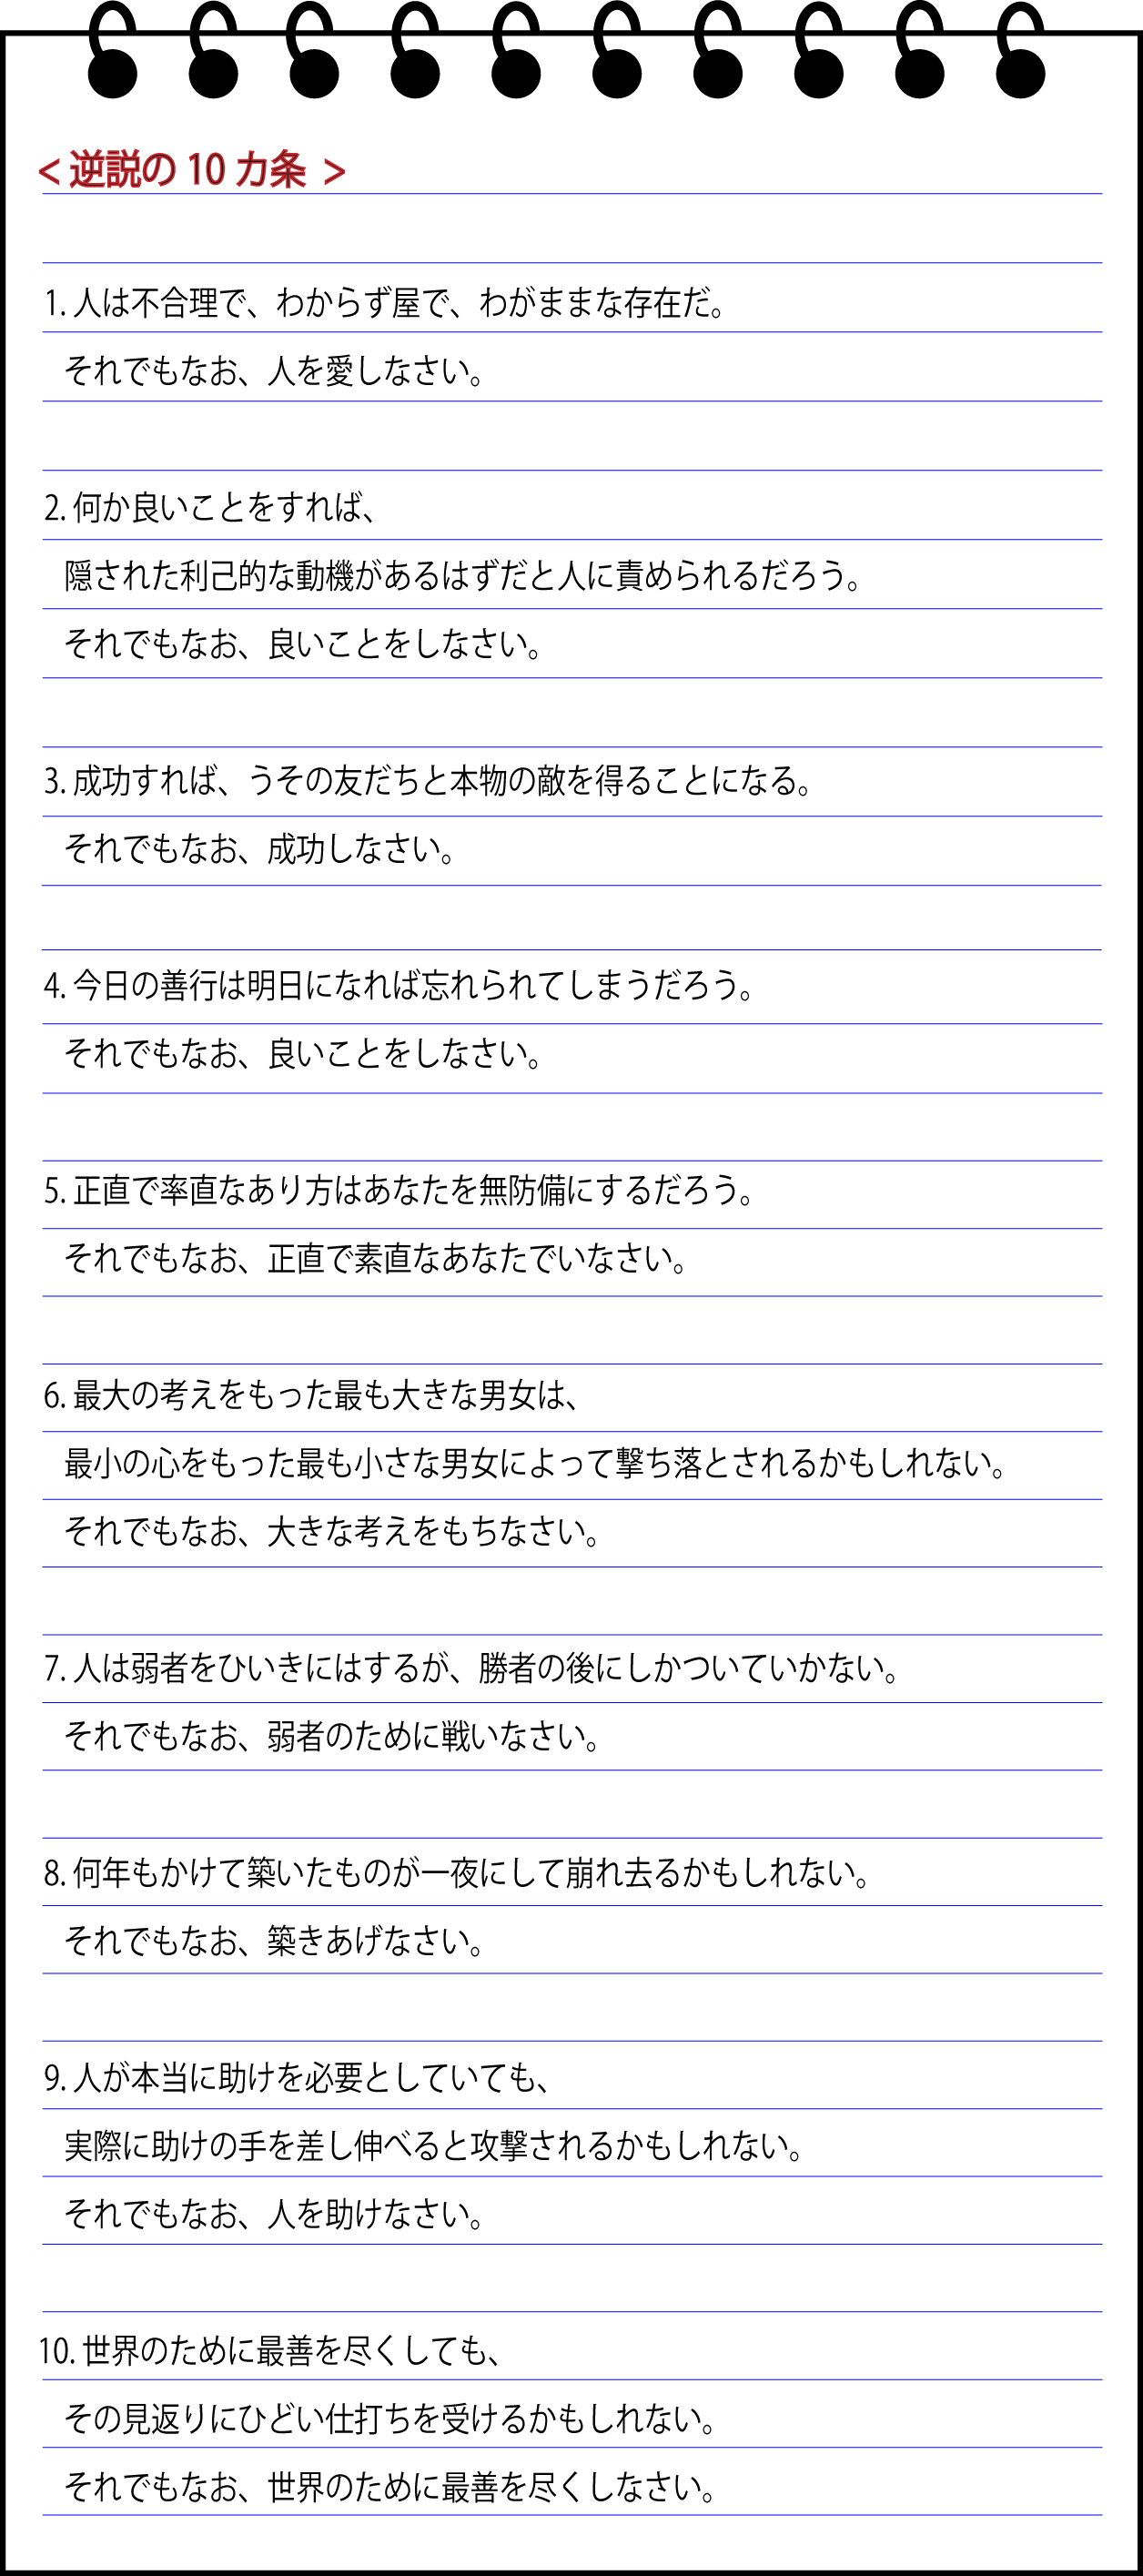 <逆説の10カ条>
1. 人は不合理で、わからず屋で、わがままな存在だ。
それでもなお、人を愛しなさい。
2. 何か良いことをすれば、
隠された利己的な動機があるはずだと人に責められるだろう。
それでもなお、良いことをしなさい。
3. 成功すれば、うその友だちと本物の敵を得ることになる。
それでもなお、成功しなさい。
4. 今日の善行は明日になれば忘れられてしまうだろう。
それでもなお、良いことをしなさい。
5. 正直で率直なあり方はあなたを無防備にするだろう。
それでもなお、正直で素直なあなたでいなさい。
6. 最大の考えをもった最も大きな男女は、
最小の心をもった最も小さな男女によって撃ち落とされるかもしれない。
それでもなお、大きな考えをもちなさい。
7. 人は弱者をひいきにはするが、勝者の後にしかついていかない。
それでもなお、弱者のために戦いなさい。
8. 何年もかけて築いたものが一夜にして崩れ去るかもしれない。
それでもなお、築きあげなさい。
9. 人が本当に助けを必要としていても、
実際に助けの手を差し伸べると攻撃されるかもしれない。
それでもなお、人を助けなさい。
10. 世界のために最善を尽くしても、
その見返りにひどい仕打ちを受けるかもしれない。
それでもなお、世界のために最善を尽くしなさい。